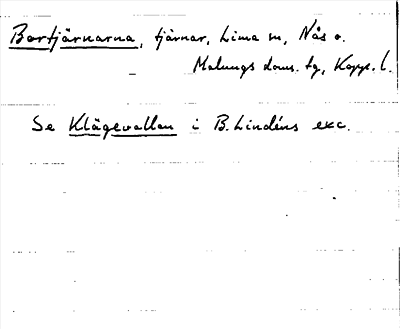 Bortjärnarna, tjärnar, Lima sn, Nås o.
Malungs doms. tg, Kopp. l.
Se Klägevallen i B. Lindéns exc.